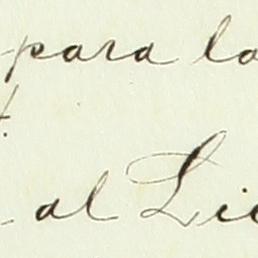 para la
al Lic